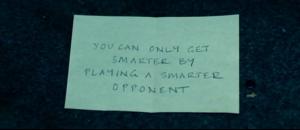 YOU CAN ONLY GET
SMARTER BY
PLAYING A SMARTER
OPPONENT